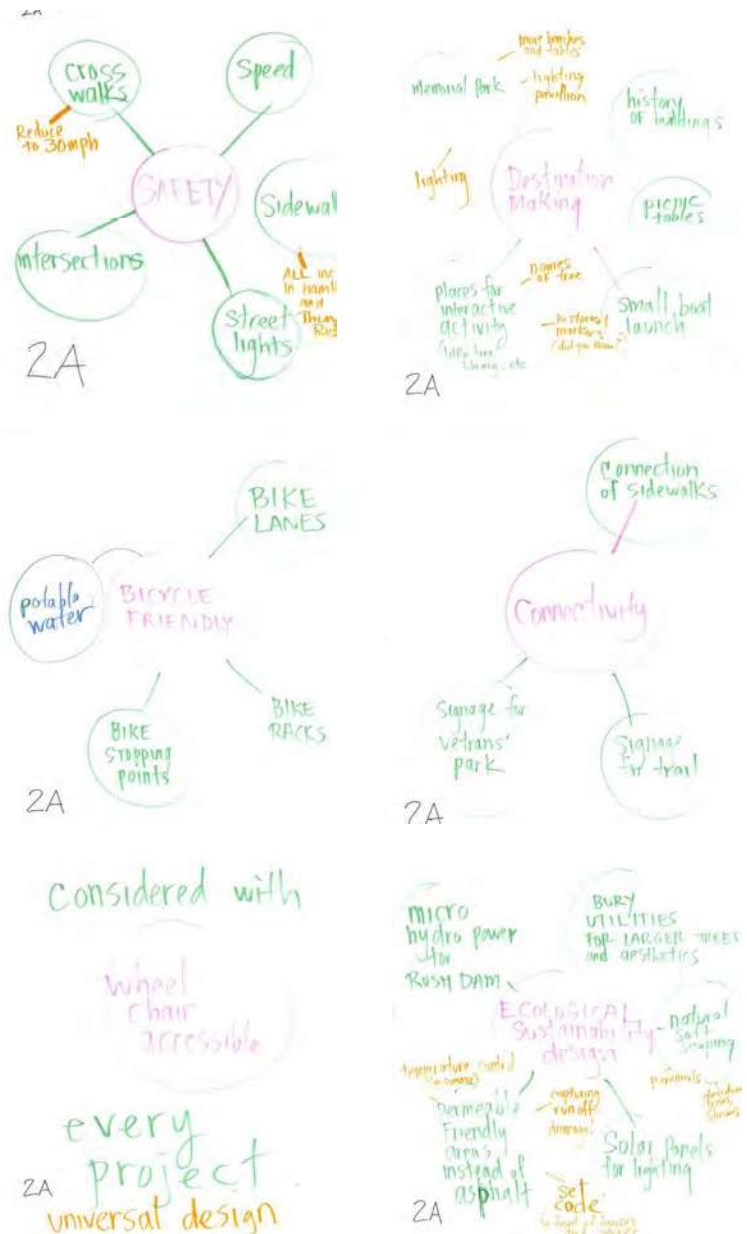 2A
Cross
walks
Speed
Reduce
to 30mph
SAFETY
Sidewal
intersections
ALL inc
in hamle
and
Street
lights
2A
more benches
and tables
Memorial Park
lighting
pavillion
history
of buildings
lighting
Destination
Making
picnic
tables
names
of tree
places for
interactive
activity
historical
markers
(did you know?)
library, etc
Small boat
launch
2A
BIKE
LANES
potable
water
BICYCLE
FRIENDLY
BIKE
RACKS
BIKE
stopping
points
2A
Connection
of sidewalks
Connectivity
Signage for
vetrans'
park
Signage
for trail
2A
Considered with
wheel
chair
accessible
every
project
2A
universal design
micro
hydro power
for
RUSH DAM
BURY
UTILITIES
FOR LARGER TREES
and aesthetics
ECOLOGICAL
Sustainability
design
natural
soft
scaping
temperature control
perennials
permeable
friendly
areas
instead of
asphalt
capturing
run off
Solar Panels
for lighting
set
code
2A